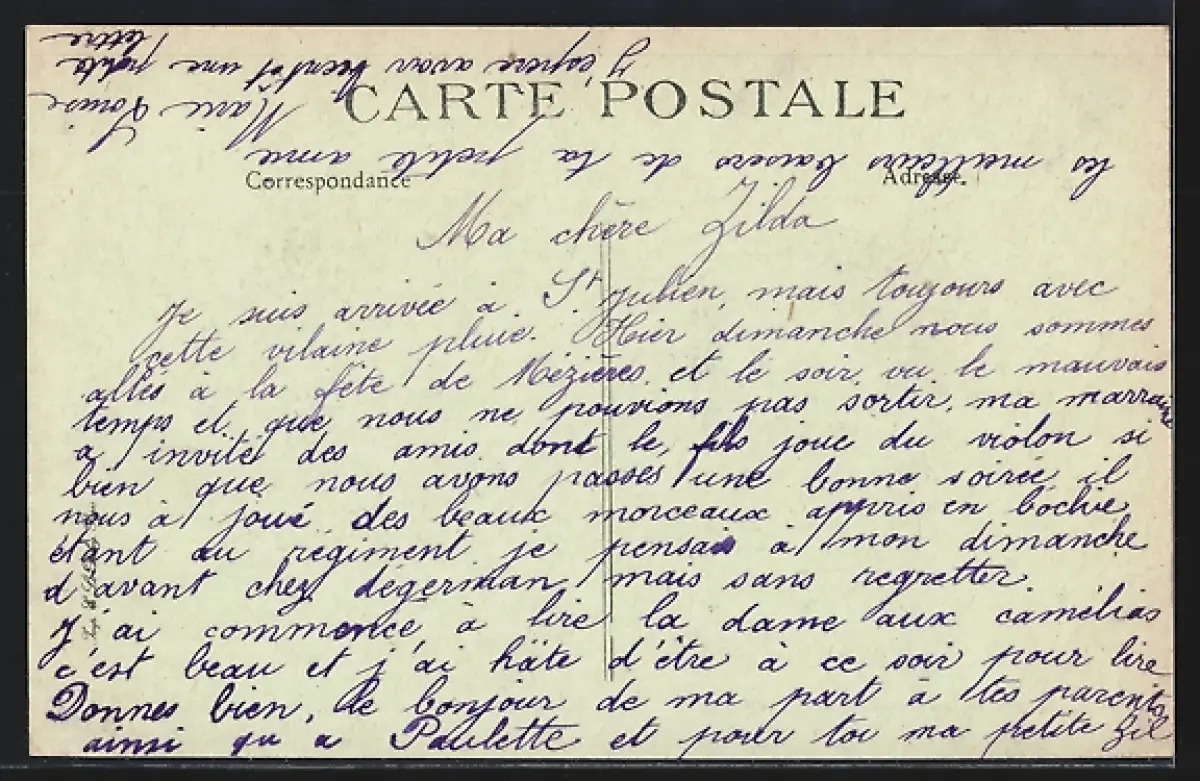 CARTE POSTALE
Correspondance
Adresse.
Ma chère Zilda
Je suis arrivée à St Julien, mais toujours avec
cette vilaine pluie. Hier dimanche nous sommes
allés à la fête de Mézières et le soir, vu le mauvais
temps et que nous ne pouvions pas sortir, ma marraine
a invité des amis dont le fils joue du violon si
bien que nous avons passés une bonne soirée, il
nous à joué des beaux morceaux appris en bochie
étant au régiment je pensais à mon dimanche
d'avant chez degerman, mais sans regretter.
J'ai commencé à lire la dame aux camélias
c'est beau et j'ai hâte d'être à ce soir pour lire
Donnes bien, le bonjour de ma part à tes parents
ainsi qu'a Paulette et pour toi ma petite Zil
les meilleurs baisers de ta petite amie
Marie Louise
J'espère avoir bientôt une petite
lettre